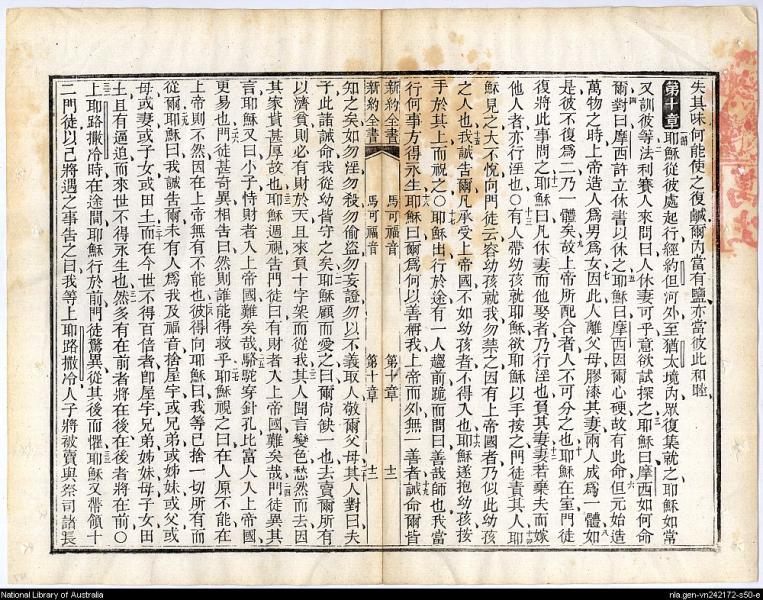 失其味何能使之復鹹爾內當有鹽亦當彼此和睦
第十章 耶穌從彼處起行經約但河外至猶太境內眾復集就之耶穌如常
又訓彼等法利賽人來問曰人休妻可乎意欲試探之耶穌曰摩西如何命
爾對曰摩西許立休書以休之耶穌曰摩西因爾心硬故有此命但元始造
萬物之時上帝造人為男為女因此人離父母膠漆其妻兩人成為一體如
是彼不復為二乃一體矣故上帝所配合者人不可分之也耶穌在室門徒
復將此事問之耶穌曰凡休妻而他娶者乃行淫也負其妻妻若棄夫而嫁
他人者亦行淫也〇有人帶幼孩就耶穌欲耶穌以手按之門徒責其人耶
穌見之大不悅向門徒云容幼孩就我勿禁之因有上帝國者乃似此幼孩
之人也我誠告爾凡承受上帝國不如幼孩者不得入也耶穌遂抱幼孩按
手於其上而祝之〇耶穌出行於途有一人趨前跪而問曰善哉師也我當
行何事方得永生耶穌曰爾為何以善稱我上帝而外無一善者誡命爾皆
新約全書 馬可福音 第十章 十二
新約全書 馬可福音 第十章 十二
知之矣如勿淫勿殺勿偷盜勿妄證勿以不義取人敬爾父母其人對曰夫
子此諸誡命我從幼皆守之矣耶穌顧而愛之曰爾尚缺一也去賣爾所有
以濟貧則必有財於天且來負十字架而從我其人聞言變色愁然而去因
其家貲甚厚故也耶穌週視告門徒曰有財者入上帝國難矣哉門徒異其
言耶穌又曰小子恃財者入上帝國難矣哉駱駝穿針孔比富人入上帝國
更易也門徒甚奇異相告曰然則誰能得救乎耶穌視之曰在人原不能在
上帝則不然因在上帝無有不能也彼得向耶穌曰我等已捨一切所有而
從爾耶穌曰我誠告爾未有人為我及福音捨屋宇或兄弟或姊妹或父或
母或妻或子女或田土而在今世不得百倍者即屋宇兄弟姊妹母子女田
土且有逼迫而來世不得永生也然多有在前者將在後在後者將在前〇
上耶路撒冷時在途間耶穌行於前門徒驚異從其後而懼耶穌又帶領十
二門徒以己將遇之事告之曰我等上耶路撒冷人子將被賣與祭司諸長
National Library of Australia
nla.gen-vn242172-s50-e